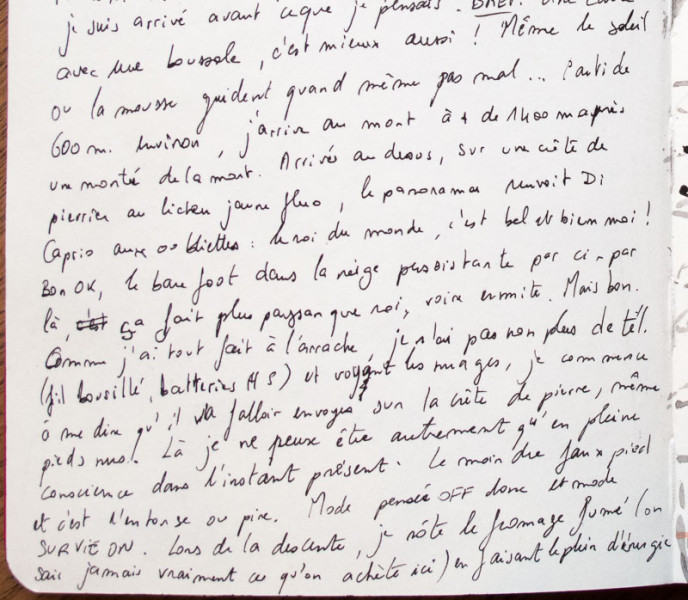 je suis arrivé avant ce que je pensais. BREF. Une
avec une boussole, c'est mieux aussi ! Même le soleil
ou la mousse guident quand même pas mal... Parti de
600 m. environ, j'arrive au mont à + de 1400 m après
une monté de la mort. Arrivés au dessus, sur une crête de
pierrier au lichen jaune fluo, le panorama renvoit Di
Caprio aux oubliettes : le roi du monde, c'est bel et bien moi !
Bon OK, le bare foot dans la neige persistante par ci - par
là, c'est ça fait plus paysan que roi, voire ermite. Mais bon.
Comme j'ai tout fait à l'arrache, je n'ai pas non plus de tél.
(fil bousillé, batteries HS) et voyant les nuages, je commence
à me dire qu'il va falloir envoyer sur la crête de pierre, même
pieds nus. Là je ne peux être autrement qu'en pleine
conscience dans l'instant présent. Le moindre faux pied
et c'est l'entorse ou pire. Mode pensée OFF donc et mode
SURVIE ON. Lors de la descente, je rôte le fromage fumé (on
sait jamais vraiment ce qu'on achète ici) en faisant le plein d'énergie